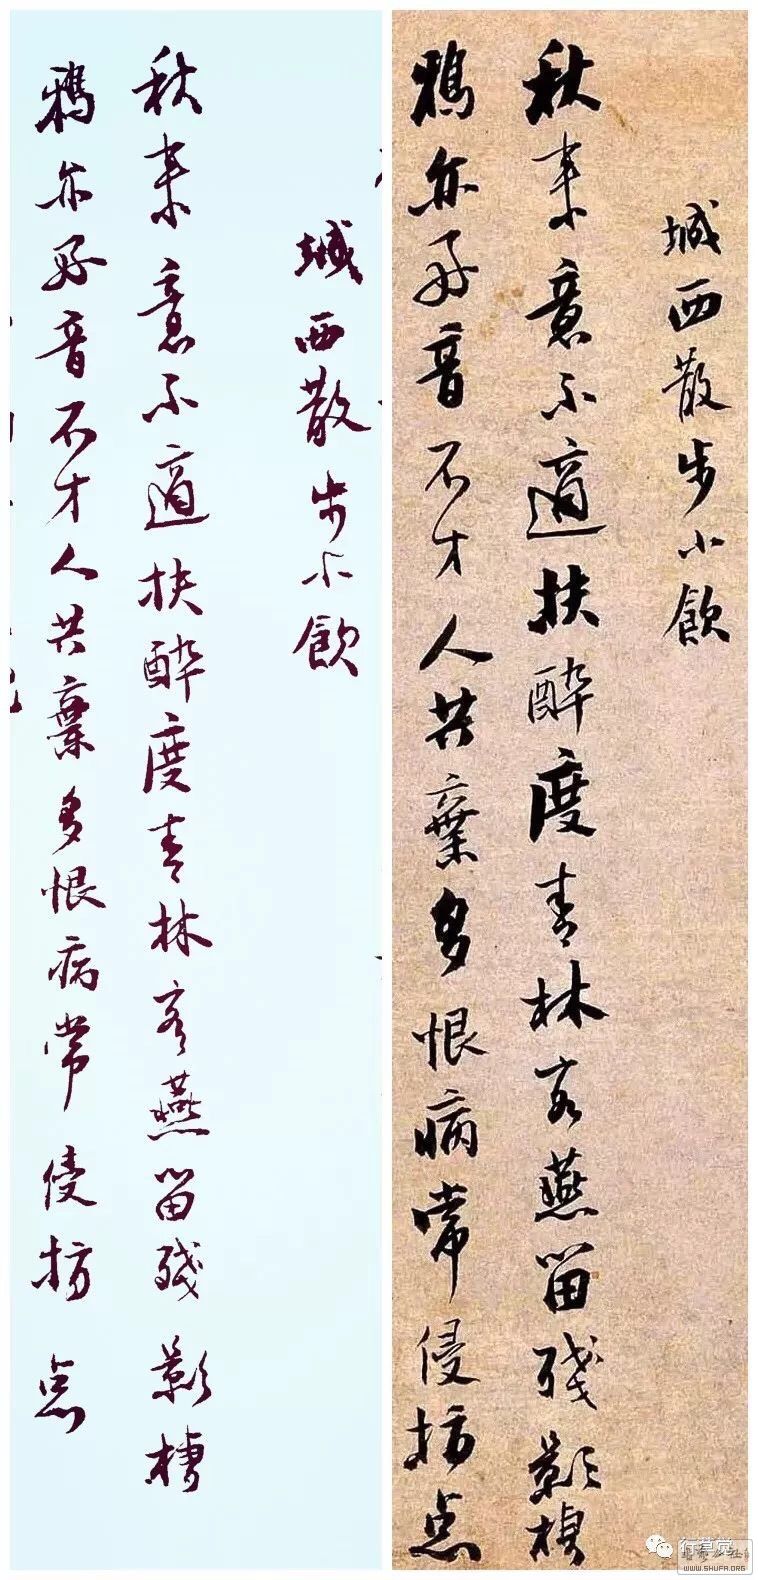 城西散步小飲
秋来意不適扶醉度青林客燕留殘影棲
鴉亦好音不才人共棄多恨病常侵拚点
城西散步小飲
秋来意不適扶醉度青林客燕留殘影棲
鴉亦好音不才人共棄多恨病常侵拚点
行草堂
WWW.SHUFA.ORG